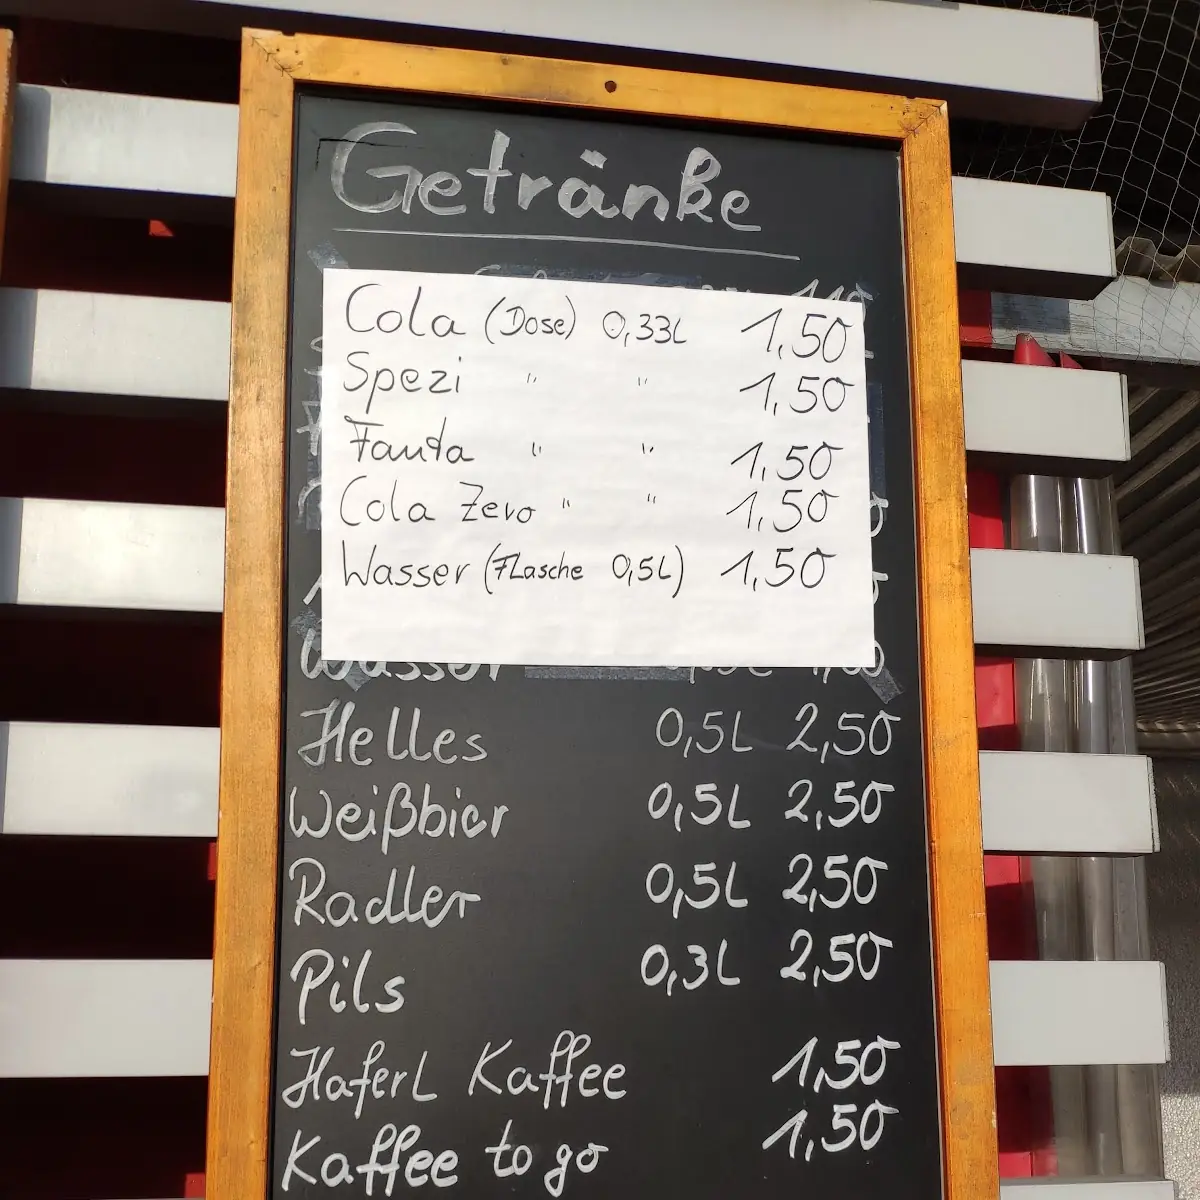 Getränke
Cola (Dose) 0,33L 1,50
Spezi " " 1,50
Fanta " " 1,50
Cola Zero " " 1,50
Wasser (Flasche 0,5L) 1,50
Wasser
Helles 0,5L 2,50
Weißbier 0,5L 2,50
Radler 0,5L 2,50
Pils 0,3L 2,50
Haferl Kaffee 1,50
Kaffee to go 1,50